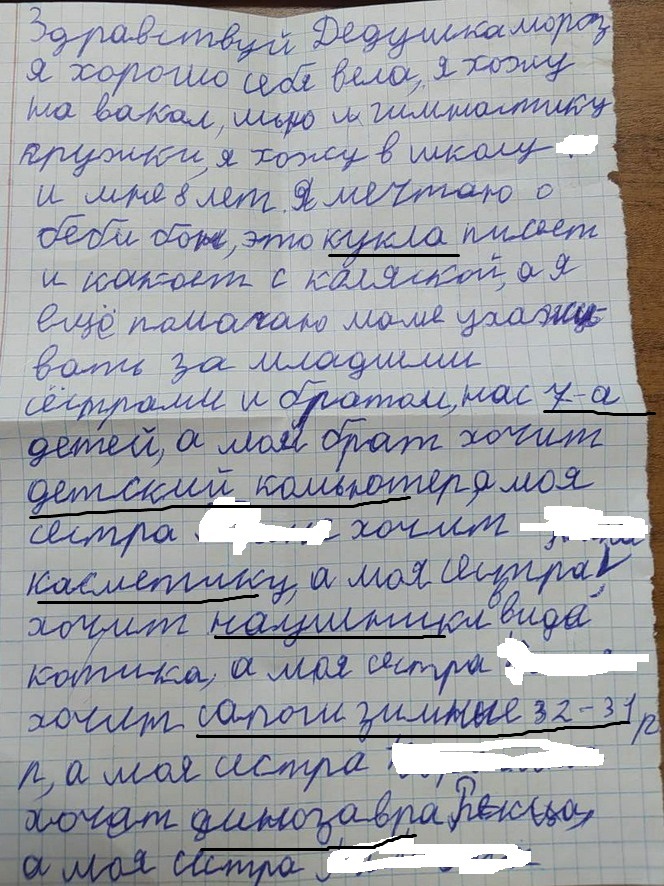 Здравствуй Дедушка мороз
я хорошо себя вела, я хожу
на вакал, и гимнастику
кружки, я хожу в школу
и мне 8 лет. Я мечтаю о
беби бон, это кукла писает
и какает с коляской, а я
ещё памагаю маме ухажи-
вать за младшими
сёстрами и братом, нас 7-а
детей, а мой брат хочит
детский компютер, а моя
сестра хочит
касметику, а моя сестра
хочит наушники вида
котика, а моя сестра
хочит сапоги зимные 32-31 р
р, а моя сестра
хочат динозавра Рекса,
а моя сестра